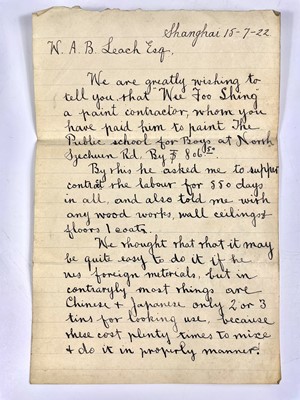 Shanghai 15-7-22
W. A. B. Leach Esq.,
We are greatly wishing to
tell you that "Wee Foo Shing"
a paint contractor, whom you
have paid him to paint The
Public school for Boys at North
Szechuen Rd. By $ 806.50
By his he asked me to supper
contract the labour for 550 days
in all, and also told me wirh
any wood works, wall ceilings &
floors 1 coats.
We rhought rhat rhat it may
be quite easy to do it if he
ues foreign moterials, but in
contraryly most rhings are
Chinese & Japanese only 2 or 3
tins for looking use, because
rhese cost plenty times to mixe
& do it in properly manner.